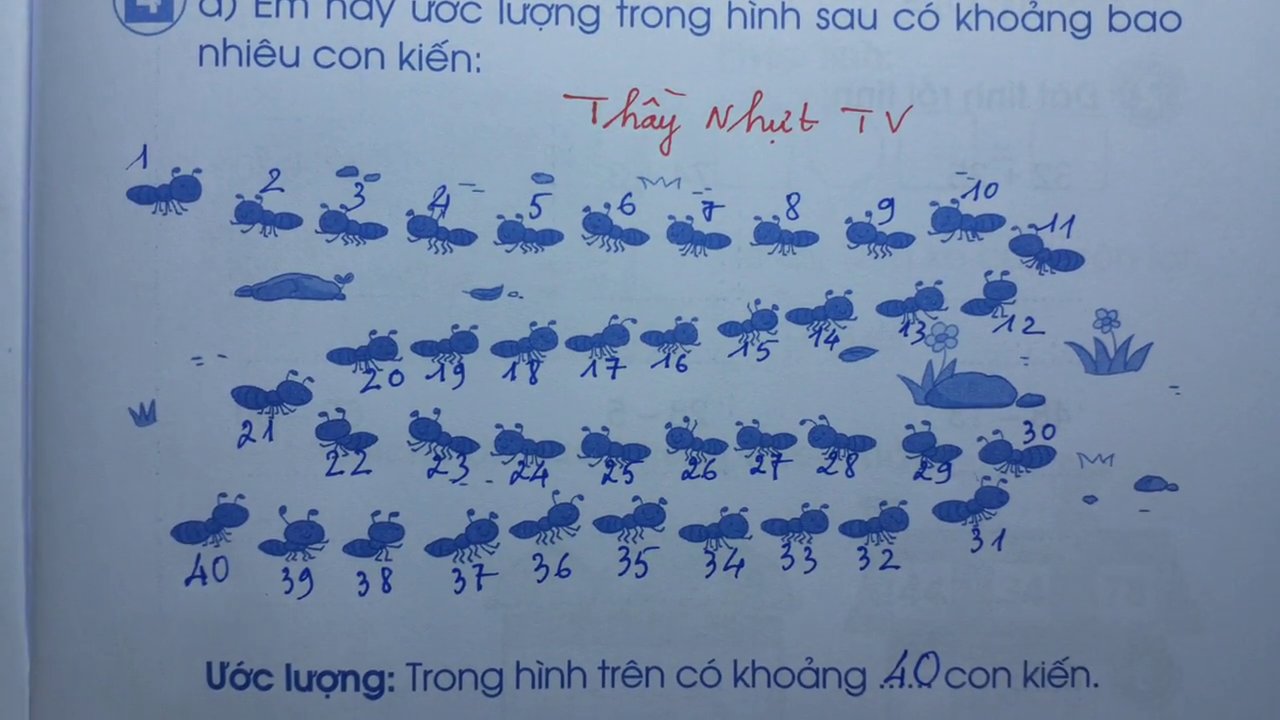 4 a) Em hãy ước lượng trong hình sau có khoảng bao
nhiêu con kiến:
Thầy Nhựt TV
1 2 3 4 5 6 7 8 9 10 11
20 19 18 17 16 15 14 13 12
21 22 23 24 25 26 27 28 29 30
40 39 38 37 36 35 34 33 32 31
Ước lượng: Trong hình trên có khoảng 40 con kiến.